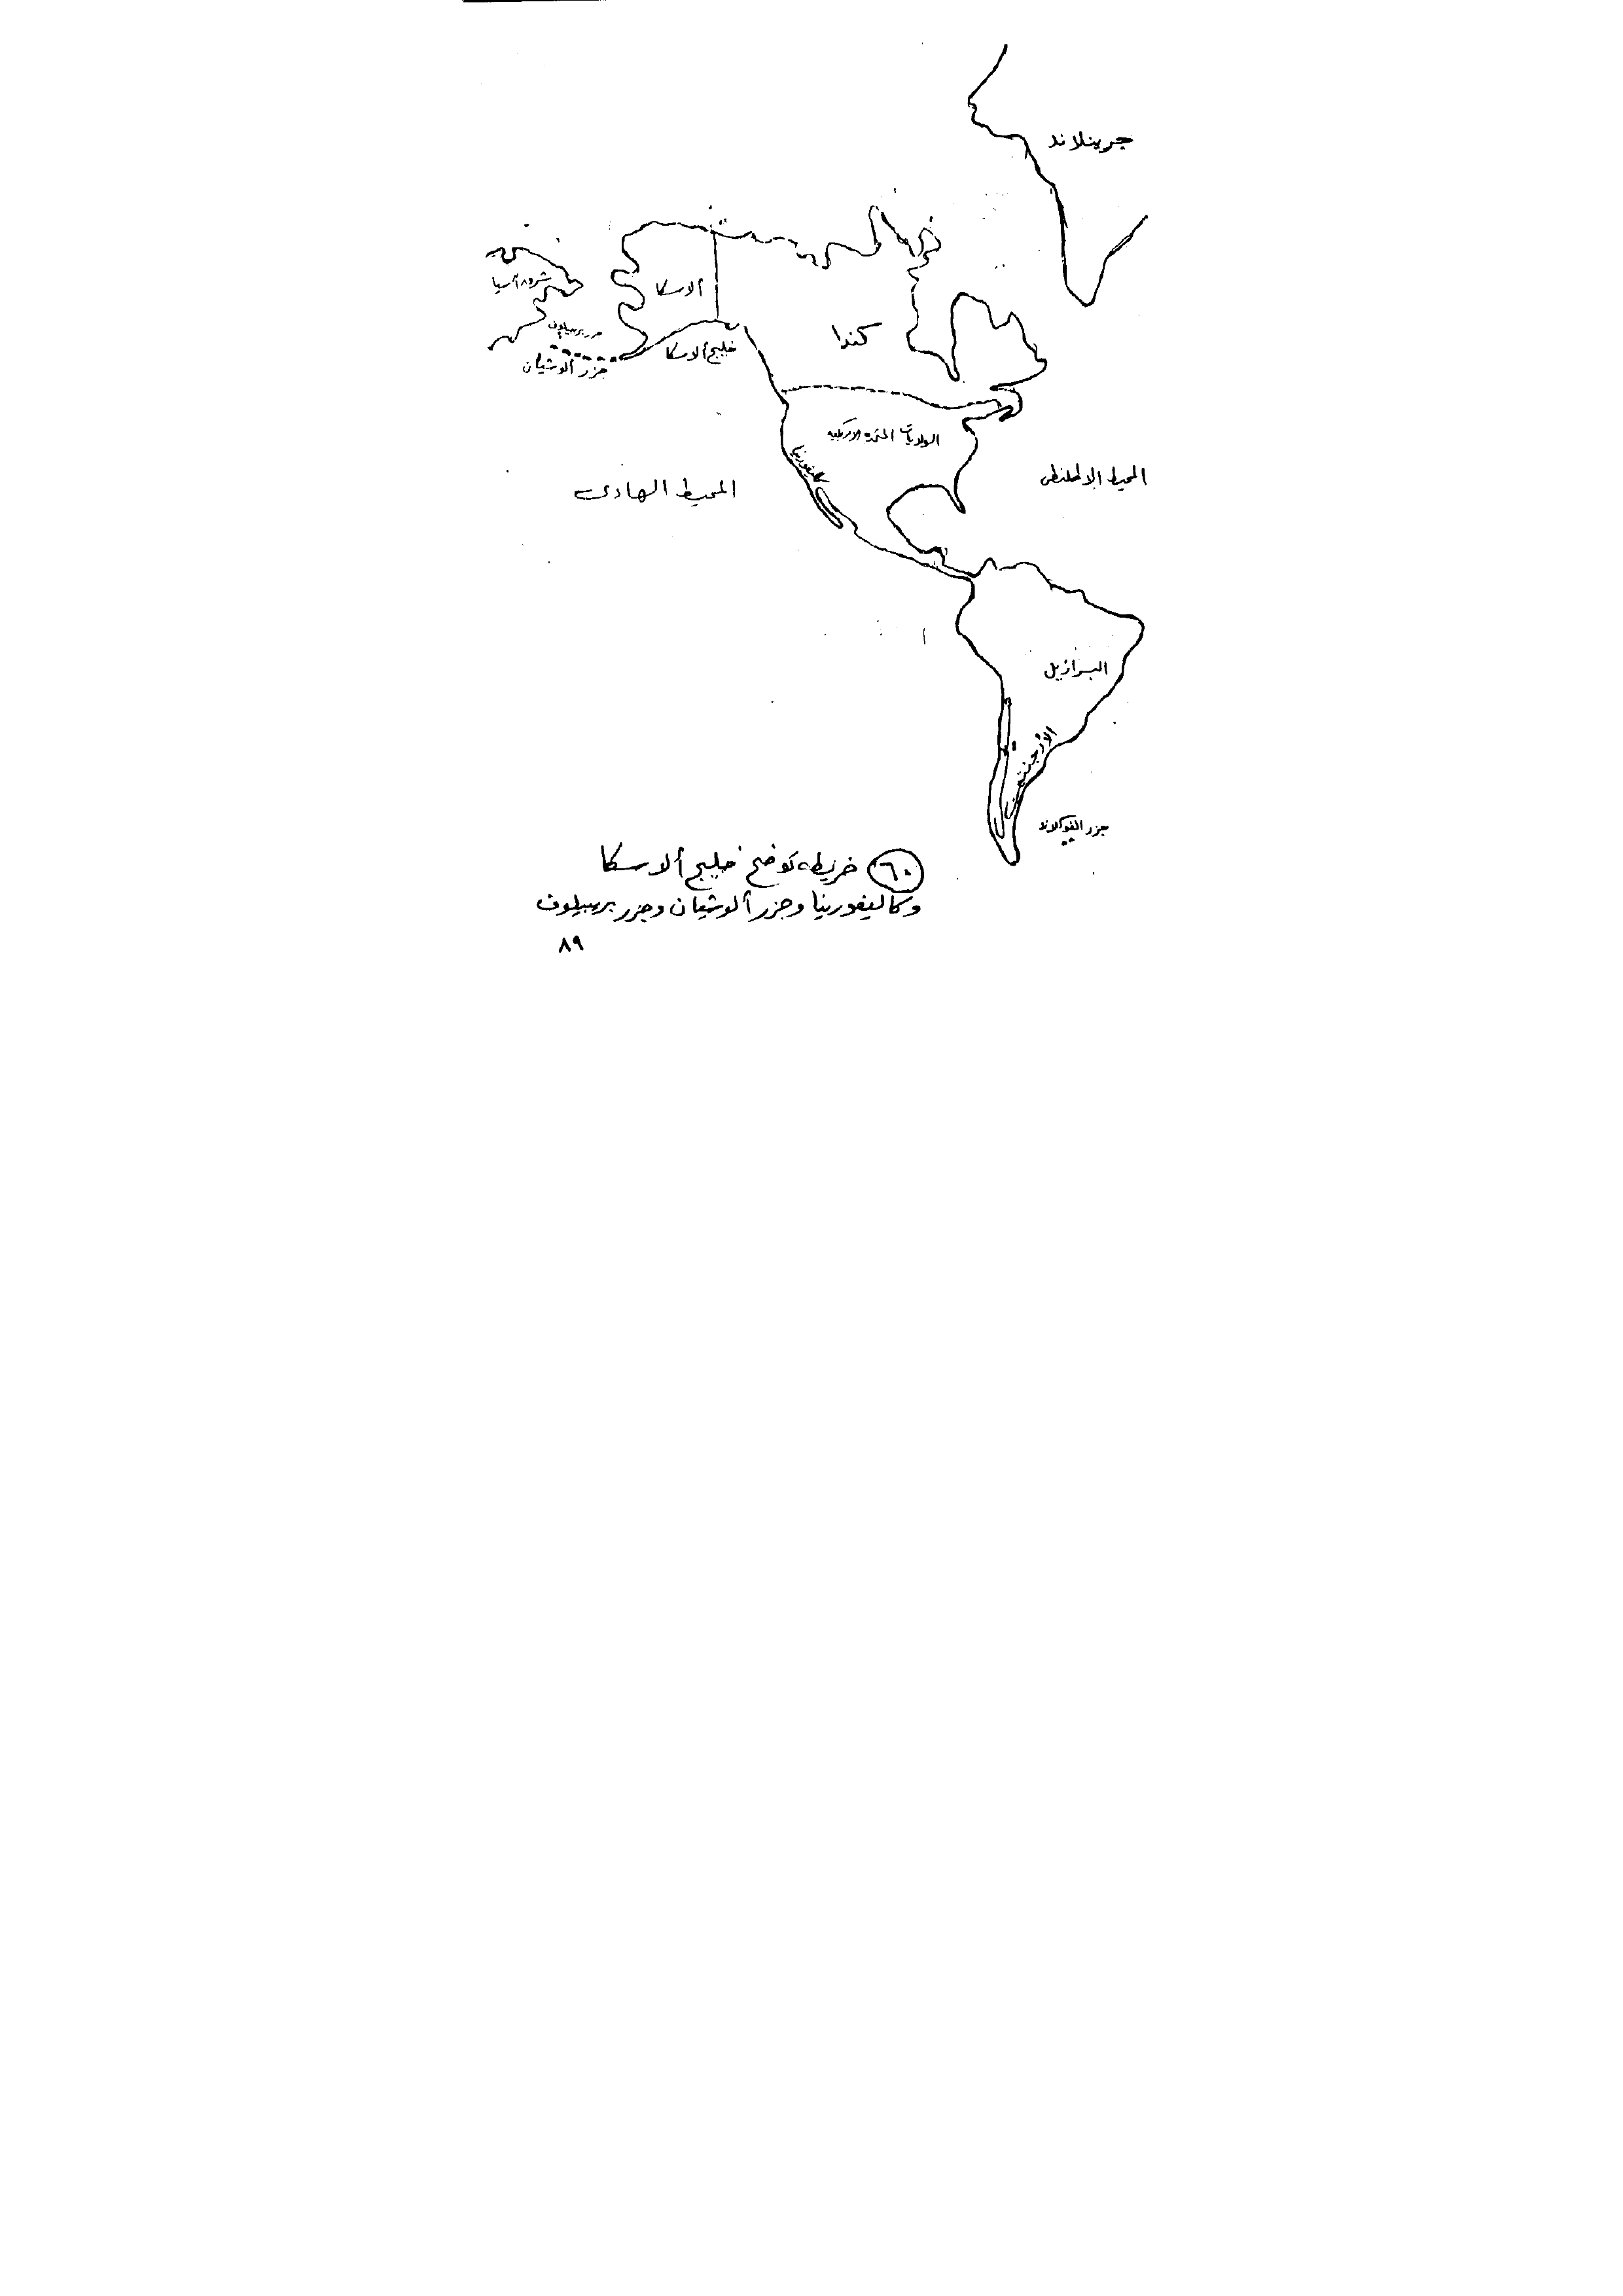 جرينلاند
شرق أسيا
ألاسكا
جزر بريبيلوف
كندا
خليج ألاسكا
جزر ألوشيان
الولايات المتحدة الامريكيه
كاليفورنيا
المحيط الاطلنطى
المحيط الهادى
البرازيل
الأرجنتين
جزر الفوكلاند
٦٠ خريطه توضح خليج ألاسكا
وكاليفورنيا وجزر ألوشيان وجزر بريبيلوف
٨٩